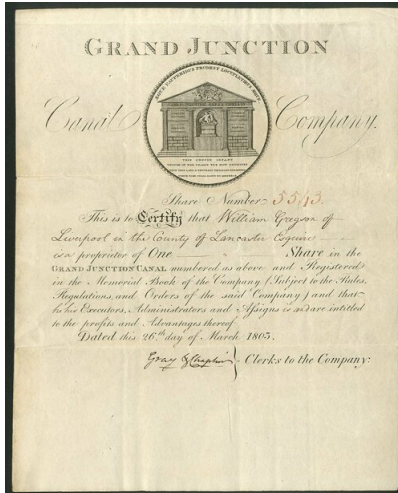 GRAND JUNCTION
Canal Company.
Share Number 5543
This is to Certify that William Gregson of
Liverpool in the County of Lancaster Esquire
is a proprietor of One Share in the
GRAND JUNCTION CANAL numbered as above and Registered
in the Memorial Book of the Company (Subject to the Rules,
Regulations, and Orders of the said Company) and that
he his Executors, Administrators and Assigns is and are intitled
to the profits and Advantages thereof.
Dated this 26.th day of March 1805.
Gray & Chaplin Clerks to the Company.